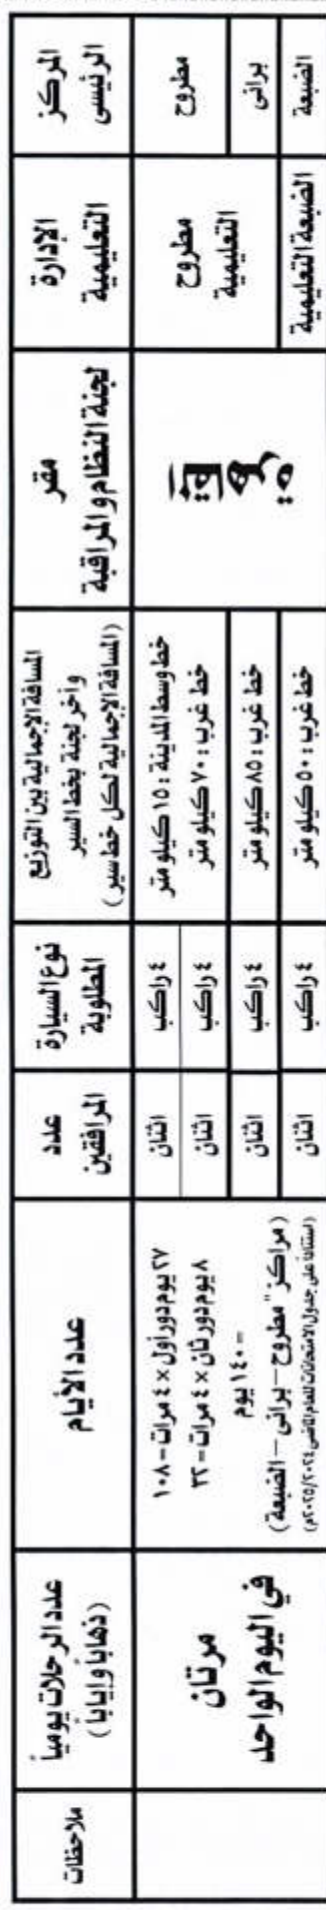 المركز
الرئيسى
الإدارة
التعليمية
مقر
لجنة النظام والمراقبة
المسافة الإجمالية بين التوزيع
وآخر لجنة بخط السير
(المسافة الإجمالية لكل خط سير)
نوع السيارة
المطلوبة
عدد
المرافقين
عدد الأيام
عدد الرحلات يومياً
(ذهاباً وإياباً)
ملاحظات
مطروح
مطروح
التعليمية
القاهرة
خط وسط المدينة : ١٥ كيلو متر
٤ راكب
اثنان
٢٧ يوم دور أول × ٤ مرات = ١٠٨
٨ يوم دور ثان × ٤ مرات = ٣٢
= ١٤٠ يوم
( مراكز " مطروح – برانى – الضبعة )
(استناداً على جدول الامتحانات للعام الماضى ٢٠٢٥/٢٠٢٤م)
مرتان
في اليوم الواحد
خط غرب : ٧٠ كيلو متر
٤ راكب
اثنان
برانى
خط غرب : ٨٥ كيلو متر
٤ راكب
اثنان
الضبعة
الضبعة التعليمية
خط غرب : ٥٠ كيلو متر
٤ راكب
اثنان